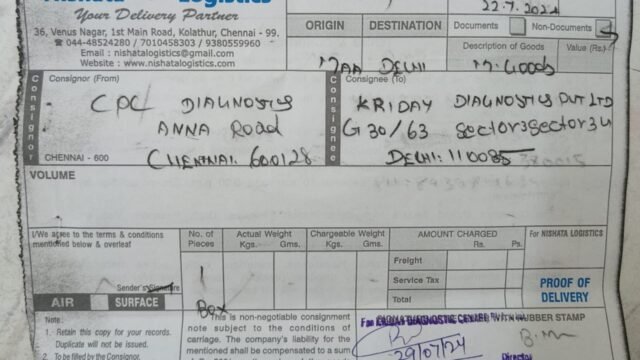 Nishata Logistics
Your Delivery Partner
36, Venus Nagar, 1st Main Road, Kolathur, Chennai - 99.
☎ 044-48524280 / 7010458303 / 9380559960
Email : nishatalogistics@gmail.com
Website : www.nishatalogistics.com
22-7-2024
ORIGIN DESTINATION
Documents Non-Documents
Description of Goods Value (Rs.)
MAA DELHI M. Goods
Consignor
Consignor (From)
CPC DIAGNOSTICS
ANNA ROAD
CHENNAI. 600128
CHENNAI - 600
Consignee
Consignee (To)
KRIDAY DIAGNOSTICS PVT LTD
G 30/63 Sector3Sector34
DELHI: 110085
VOLUME
I/We agree to the terms & conditions
mentioned below & overleaf
Sender's Signature
No. of
Pieces
1
Box
Actual Weight
Kgs. Gms.
Chargeable Weight
Kgs. Gms.
AMOUNT CHARGED
Rs. Ps.
Freight
Service Tax
Total
For NISHATA LOGISTICS
PROOF OF
DELIVERY
AIR SURFACE
Note :
1.- Retain this copy for your records.
Duplicate will not be issued.
2. To be filled by the Consignor.
This is non-negotiable consignment
note subject to the conditions of
carriage. The company's liability for the
mentioned shall be compensated to a sum
WITH RUBBER STAMP
29/07/24
Director